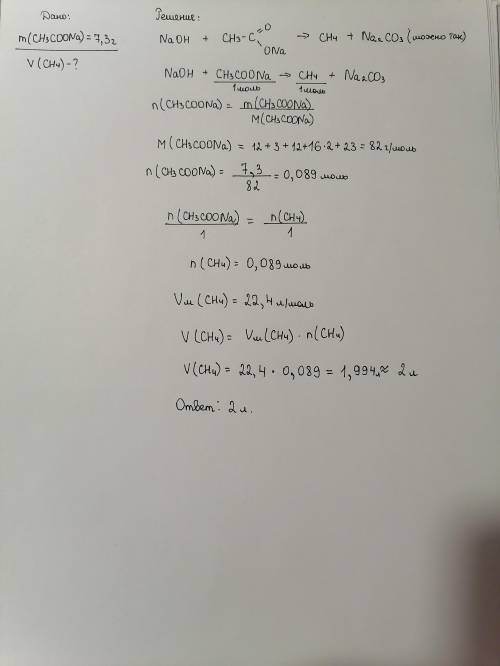 Дано:
m(CH3COONa)=7,3г
V(CH4)-?
Решение:
NaOH + CH3-C=O ONa → CH4 + Na2CO3 (можно так)
NaOH + CH3COONa → CH4 + Na2CO3
1моль 1моль
n(CH3COONa) = m(CH3COONa)
M(CH3COONa)
M(CH3COONa) = 12+3+12+16·2+23=82 г/моль
n(CH3COONa) = 7,3 = 0,089 моль
82
n(CH3COONa) = n(CH4)
1 1
n(CH4) = 0,089 моль
Vм(CH4) = 22,4 л/моль
V(CH4) = Vм(CH4) · n(CH4)
V(CH4) = 22,4 · 0,089 = 1,994л ≈ 2 л
Ответ: 2 л.